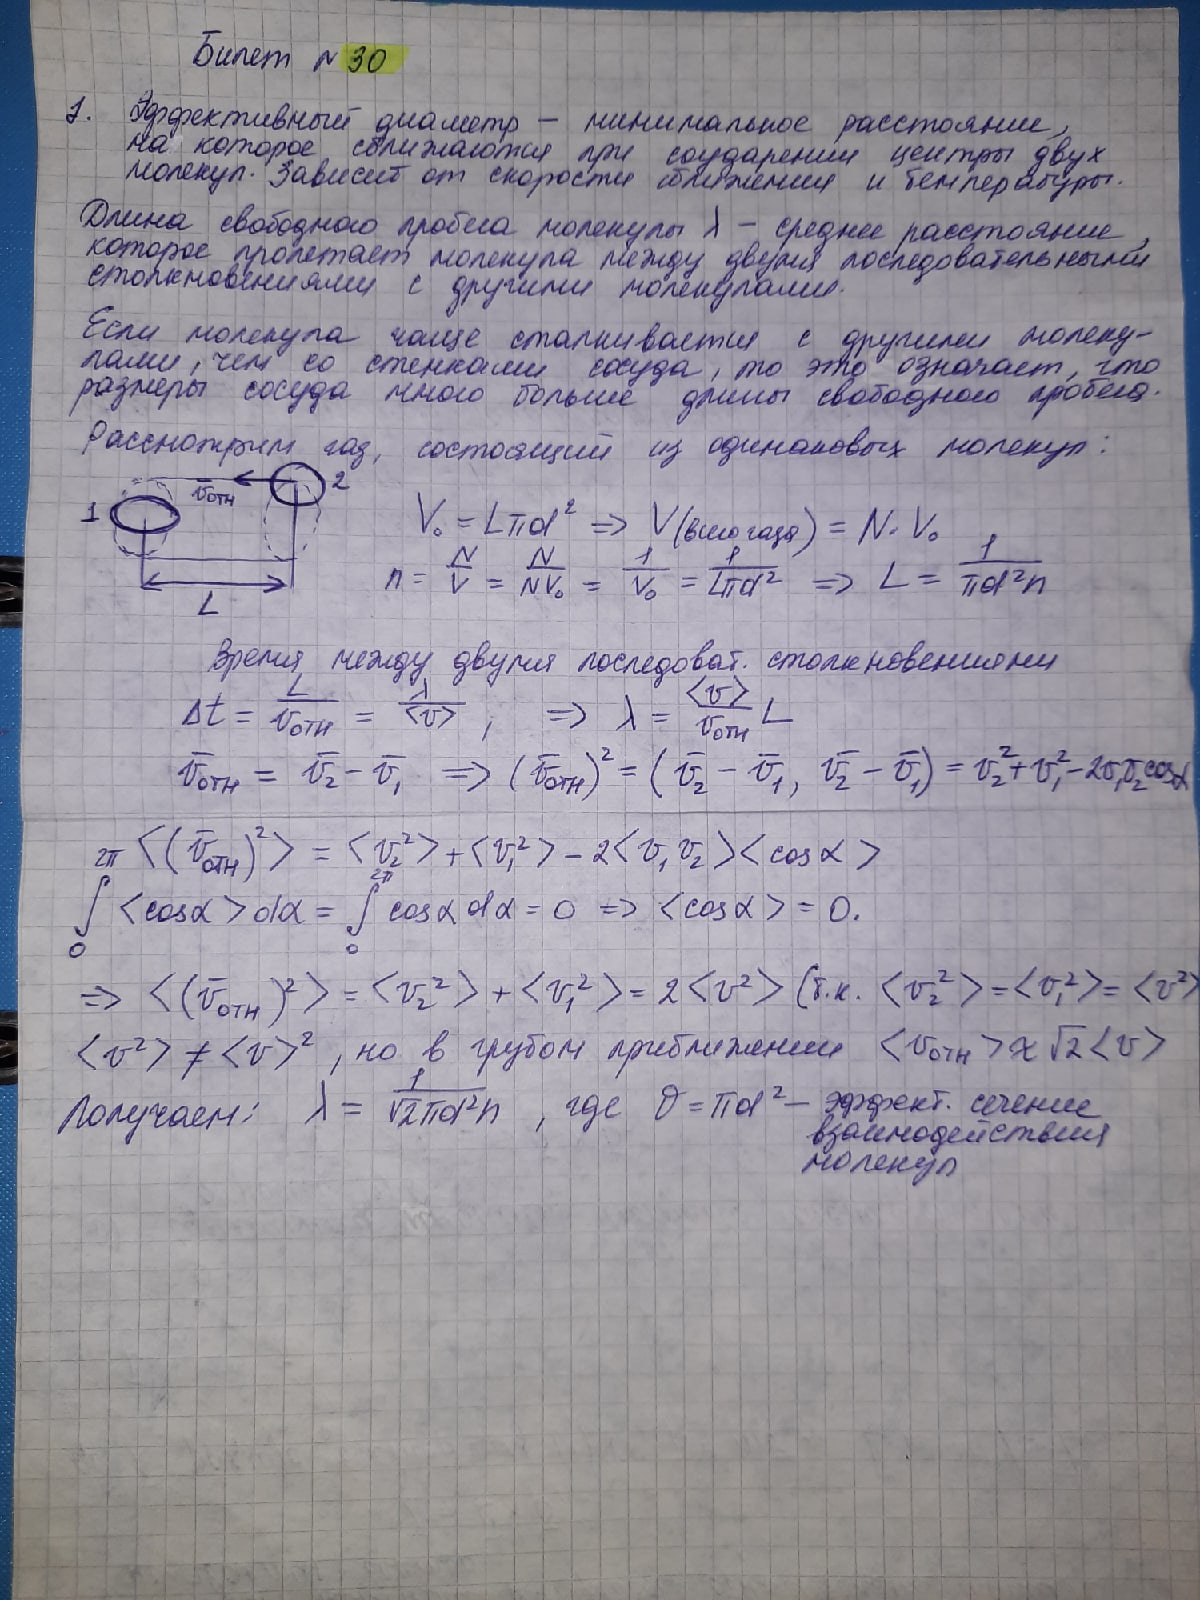 Билет N 30
1. Эффективный диаметр – минимальное расстояние,
на которое сближаются при соударении центры двух
молекул. Зависит от скорости сближения и температуры.
Длина свободного пробега молекулы λ – среднее расстояние,
которое пролетает молекула между двумя последовательными
столкновениями с другими молекулами.
Если молекула чаще сталкивается с другими молеку-
лами, чем со стенками сосуда, то это означает, что
размеры сосуда много больше длины свободного пробега.
Рассмотрим газ, состоящий из одинаковых молекул:
1 v̄отн 2
L
V₀ = Lπd² => V(всего газа) = N·V₀
n = N/V = N/NV₀ = 1/V₀ = 1/Lπd² => L = 1/πd²n
Время между двумя последоват. столкновениями
Δt = L/v̄отн = λ/<v> ; => λ = <v>/v̄отн L
v̄отн = v̄₂ - v̄₁ => (v̄отн)² = (v̄₂ - v̄₁, v̄₂ - v̄₁) = v₂² + v₁² - 2v₁v₂cosα
<(v̄отн)²> = <v₂²> + <v₁²> - 2<v₁v₂><cosα>
∫₀^2π <cosα>dα = ∫₀^2π cosα dα = 0 => <cosα> = 0.
=> <(v̄отн)²> = <v₂²> + <v₁²> = 2<v²> (т.к. <v₂²> = <v₁²> = <v²>
<v²> ≠ <v>², но в грубом приближении <vотн> ≈ √2<v>
Получаем: λ = 1/√2πd²n , где σ = πd² – эффект. сечение
взаимодействия
молекул